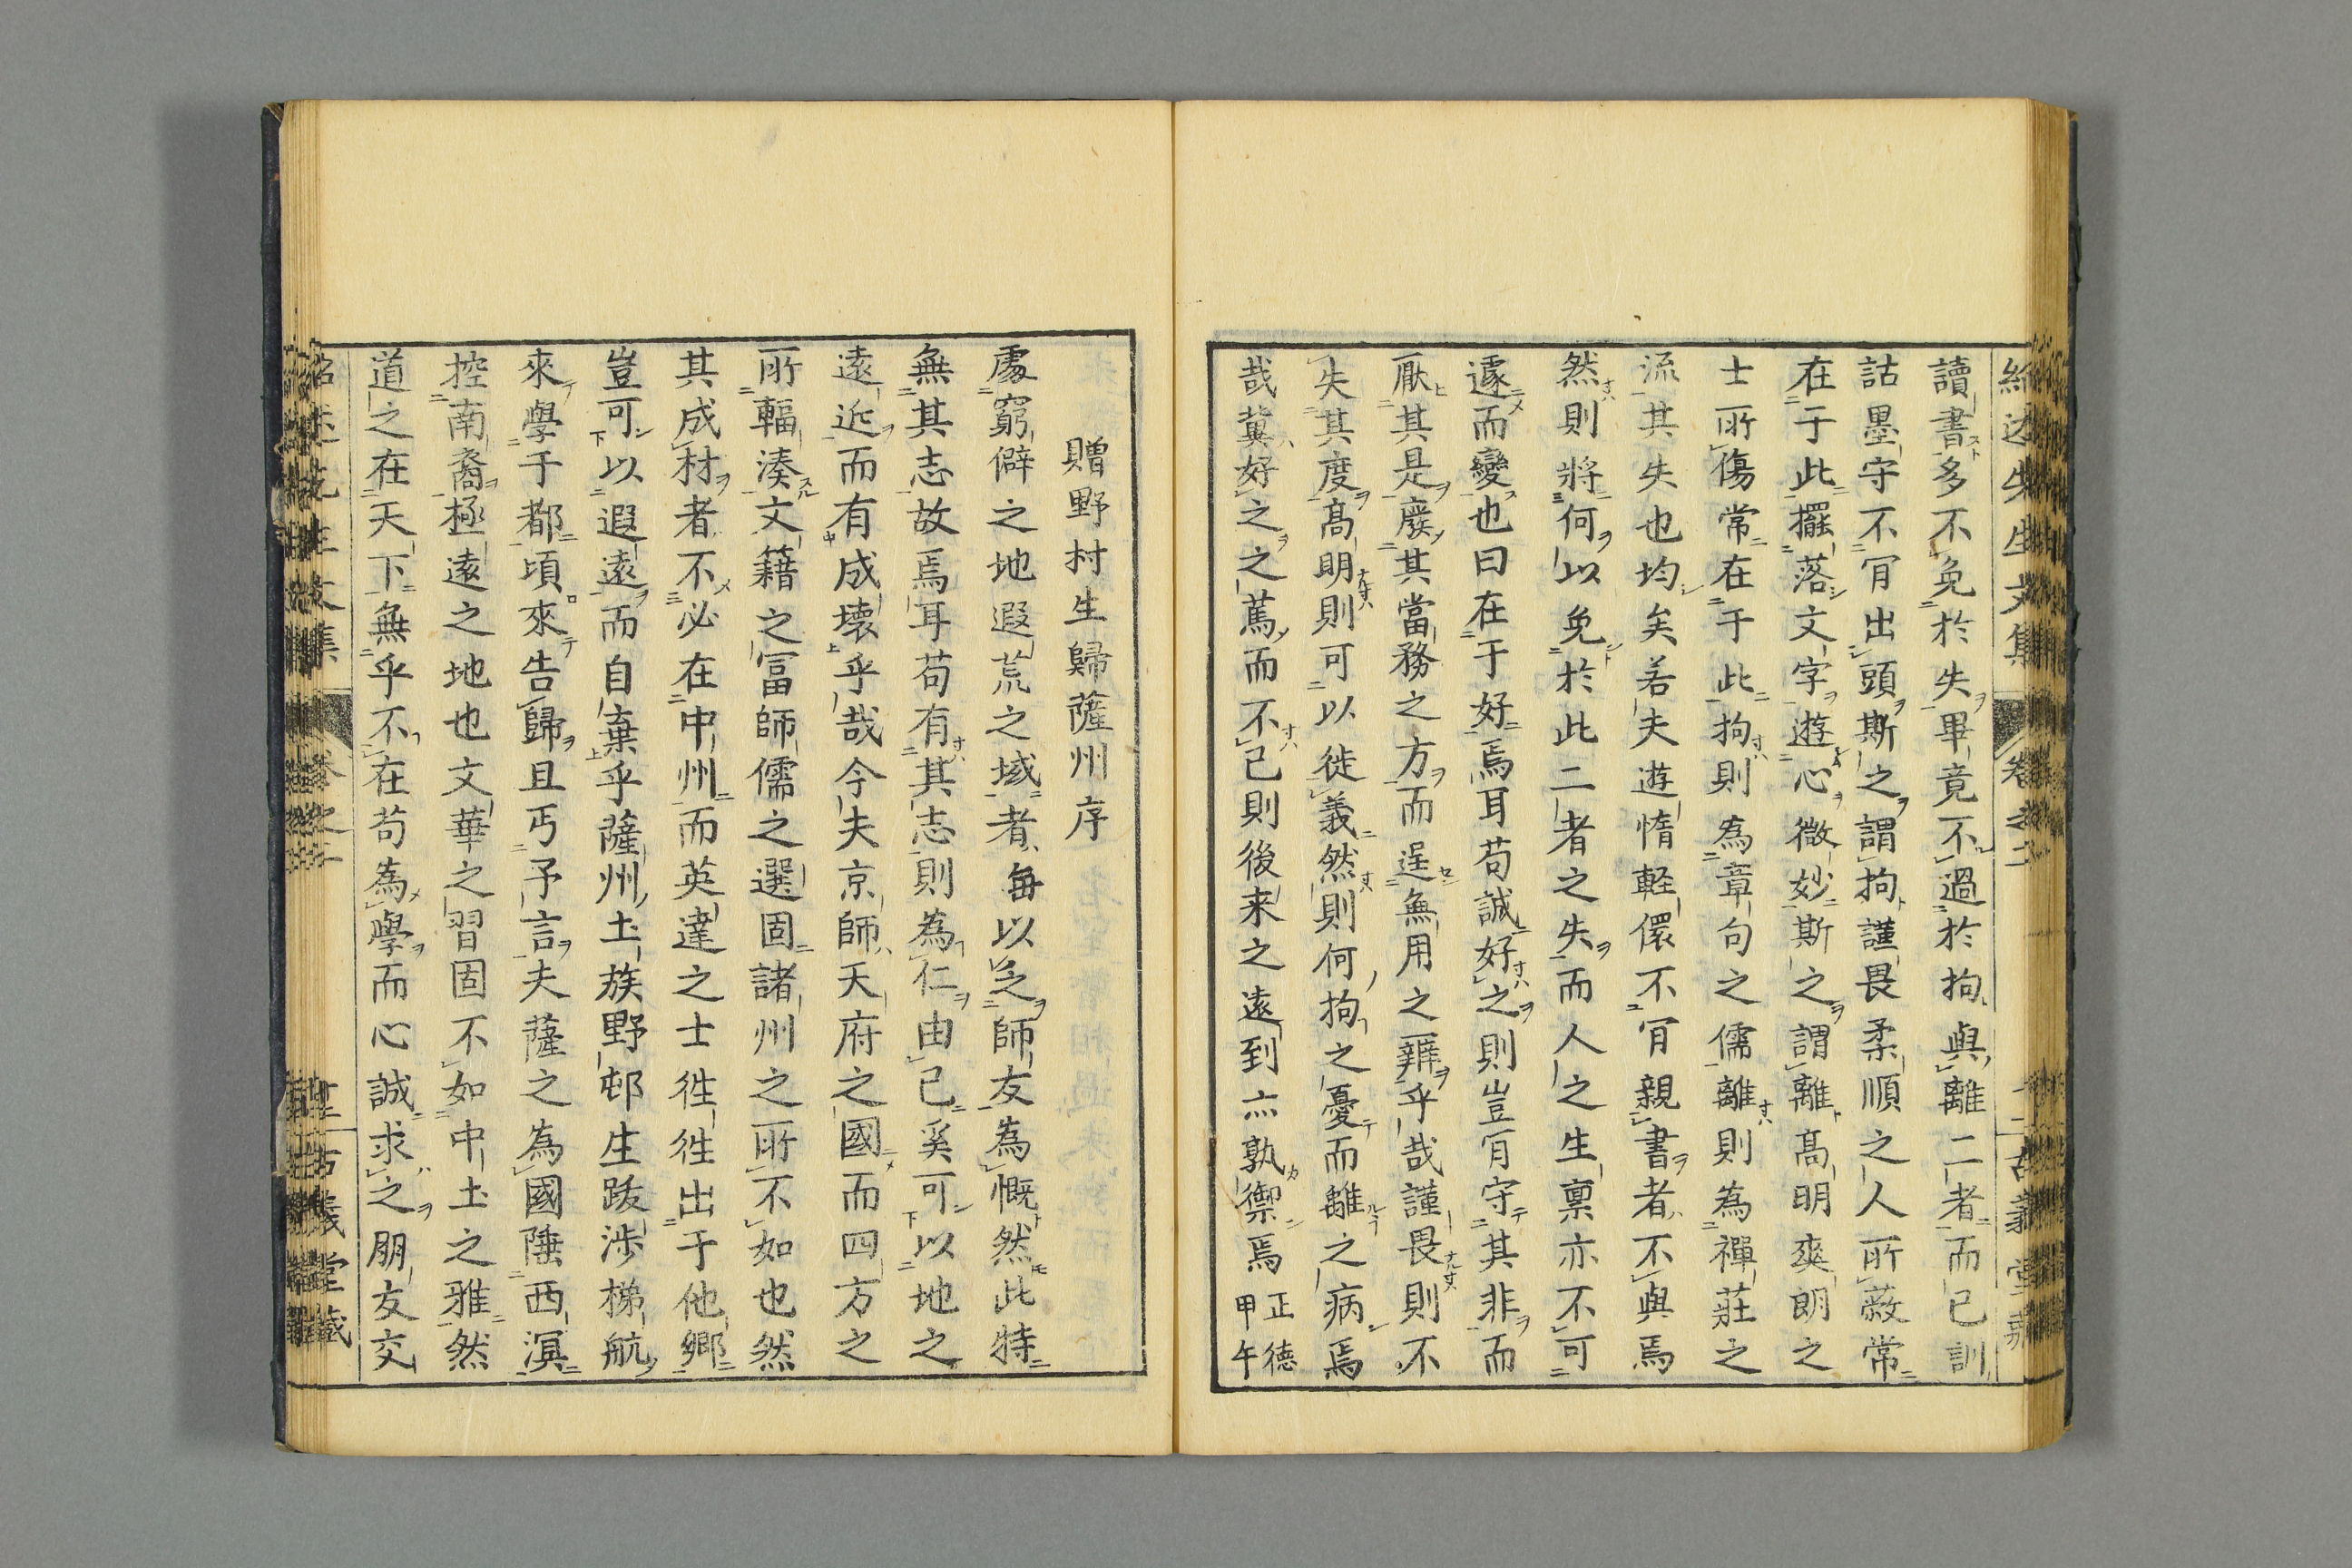 讀書多不免於失畢竟不過於拘與離二者而已訓
詁墨守不肎出頭斯之謂拘謹畏柔順之人所蔽常
在于此擺落文字遊心微妙斯之謂離髙明爽朗之
士所傷常在于此拘則為章句之儒離則為禪莊之
流其失也均矣若夫遊惰軽儇不肎親書者不與焉
然則將何以免於此二者之失而人之生稟亦不可
遽而變也曰在于好焉耳苟誠好之則豈肎守其非而
厭其是廢其當務之方而逞無用之辨乎哉謹畏則不
失其度髙明則可以徙義然則何拘之憂而離之病焉
哉冀好之之篤而不已則後来之遠到亦孰禦焉 正德甲午
贈野村生歸薩州序
處窮僻之地遐荒之域者每以乏師友為慨然此特
無其志故焉耳苟有其志則為仁由己奚可以地之
遠近而有成壊乎哉今夫京師天府之國而四方之
所輻湊文籍之冨師儒之選固諸州之所不如也然
其成材者不必在中州而英達之士徃徃出于他鄉
豈可以遐遠而自棄乎薩州土族野邨生跋渉梯航
來學于都頃來告歸且丐予言夫薩之為國陲西溟
控南裔極遠之地也文華之習固不如中土之雅然
道之在天下無乎不在苟為學而心誠求之朋友交